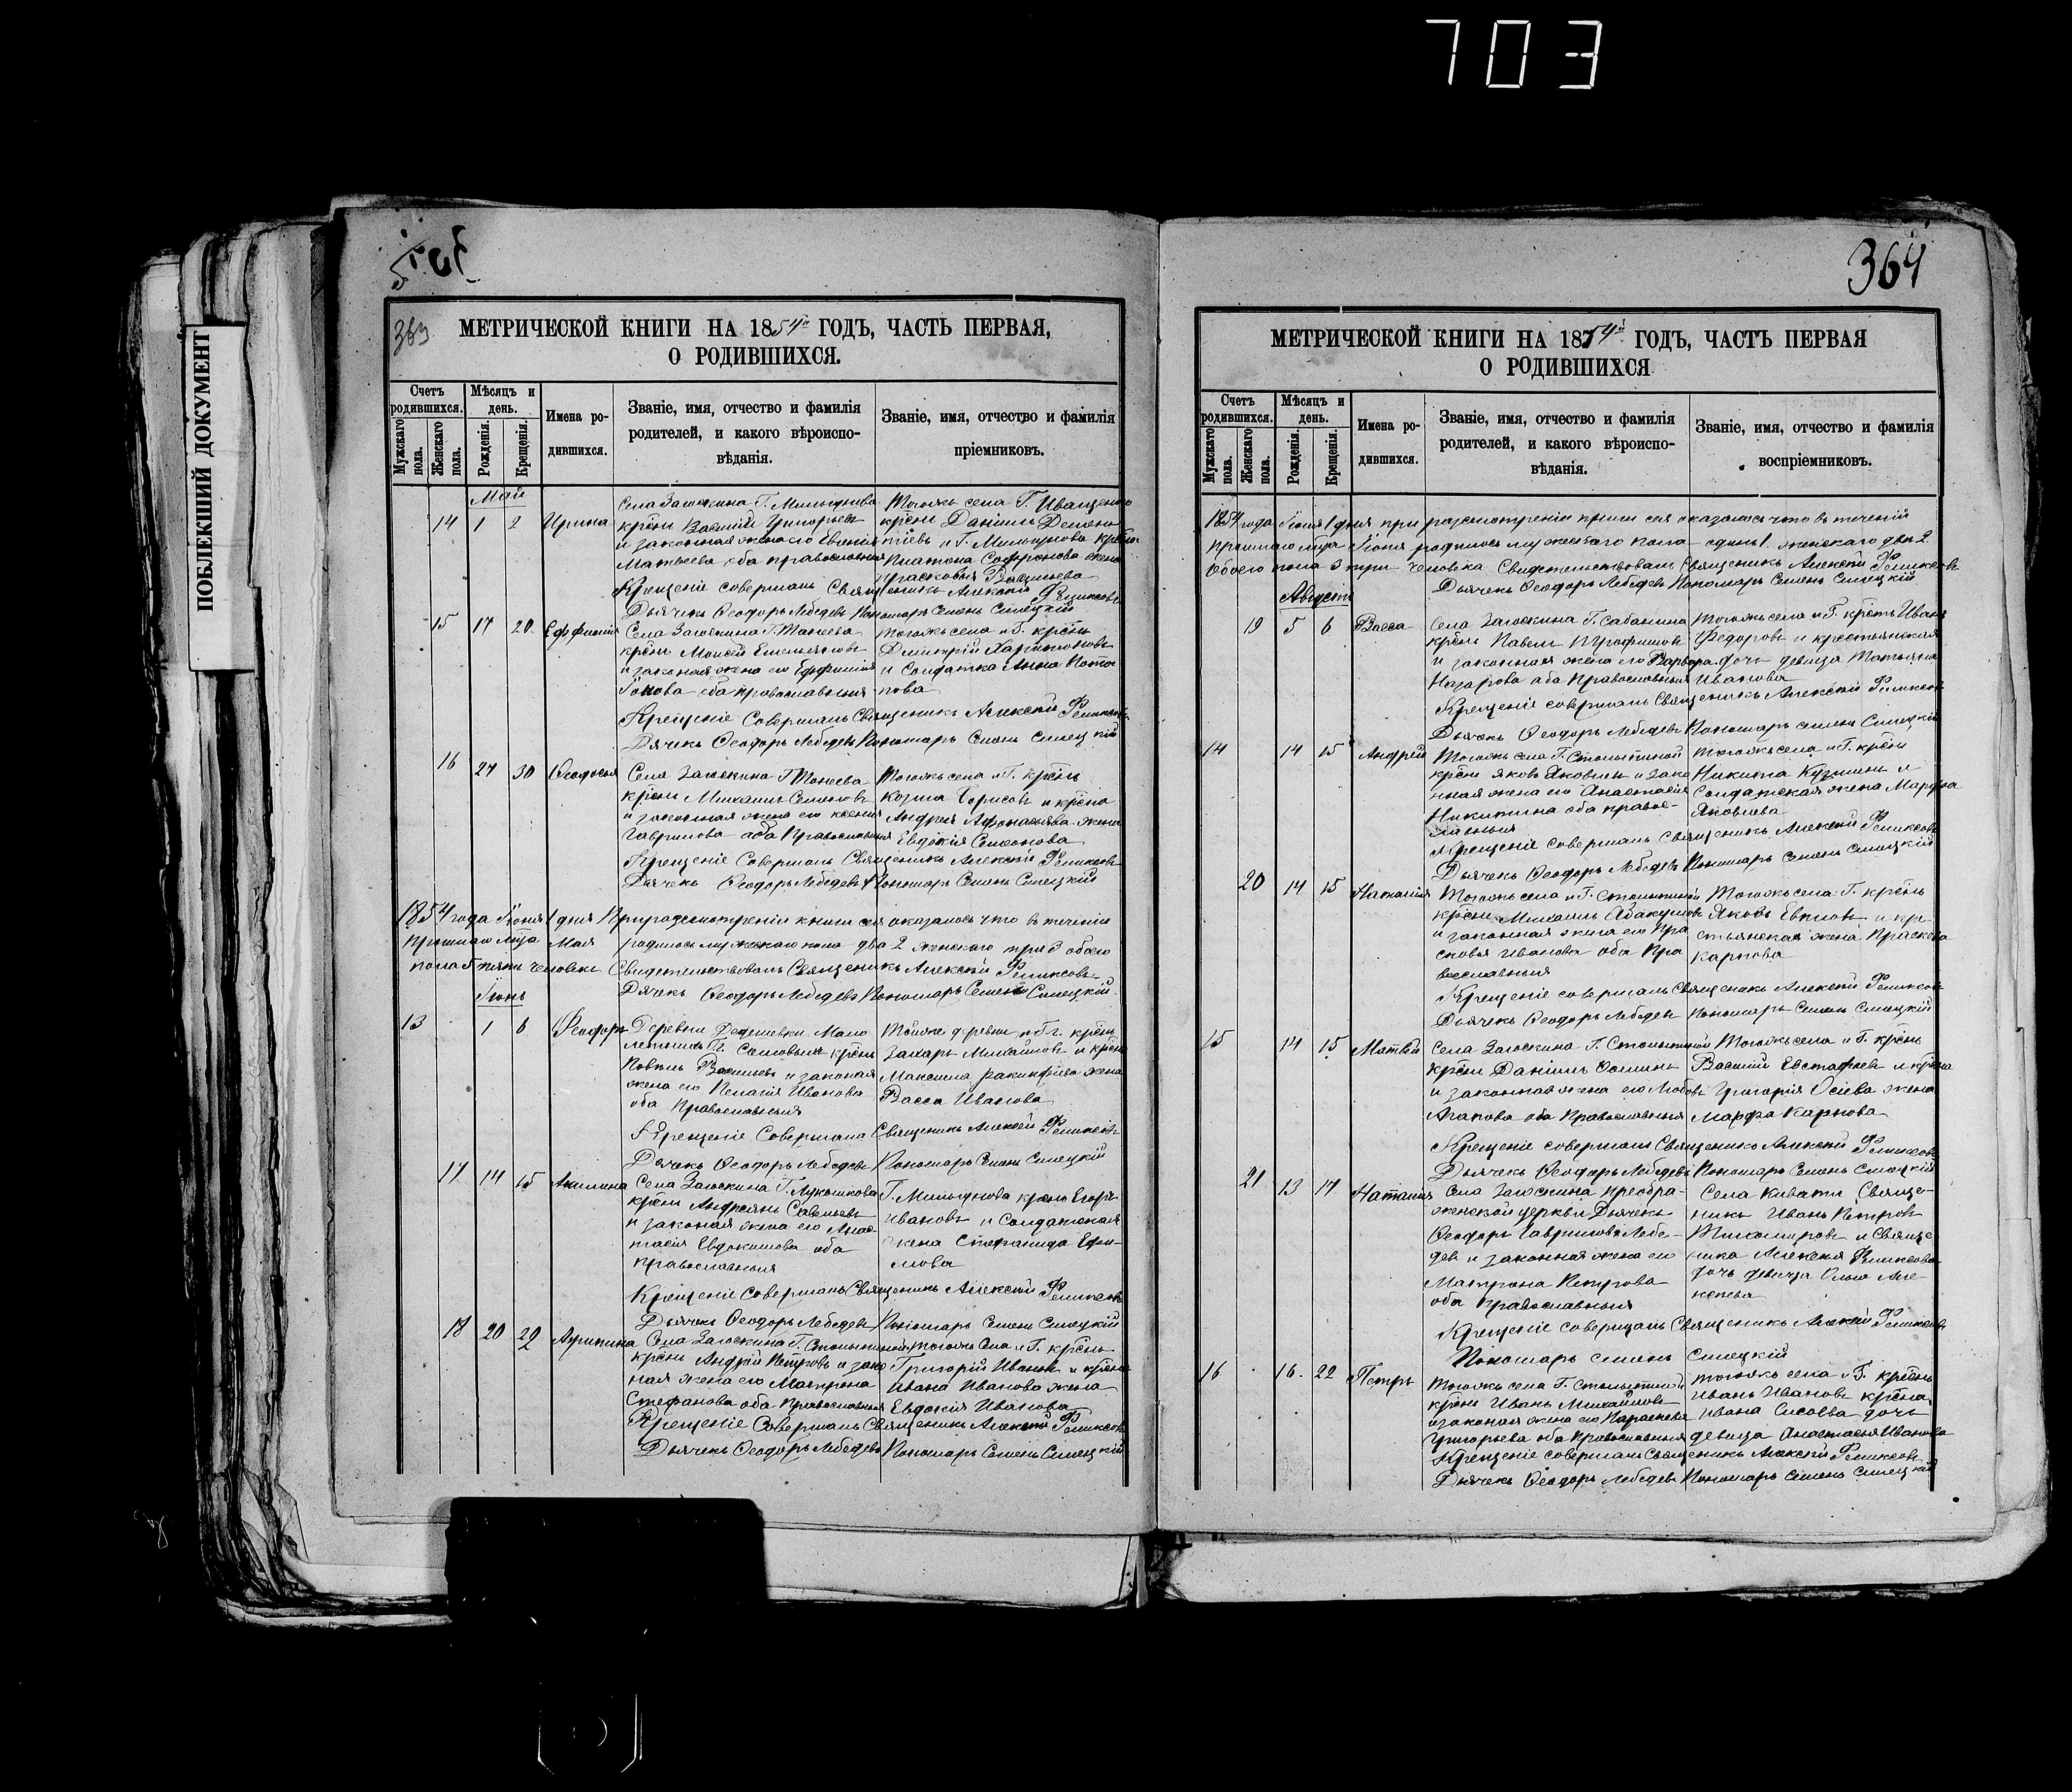 703
ПОБЛЕКШИЙ ДОКУМЕНТ
363
МЕТРИЧЕСКОЙ КНИГИ НА 1854й ГОДЪ, ЧАСТЬ ПЕРВАЯ,
О РОДИВШИХСЯ.
Счетъ родившихся.
Мѣсяцъ и день.
Имена родившихся.
Званіе, имя, отчество и фамилія родителей, и какого вѣроисповѣданія.
Званіе, имя, отчество и фамилія пріемниковъ.
Мужскаго пола.
Женскаго пола.
Рожденія.
Крещенія.
Май
14 1 2 Ирина
Села Загоскина Г. Мильгунова
крѣсн Василій Григорьевъ
и законная жена его Евгенія
Матвѣева оба православныя
Тогожъ села Г. Иващенко
крѣсн Даніилъ Демен-
тіевъ и Г. Мильгунова
Платона Софронова жена
Прасковья Васильева
Крещеніе совершалъ Священикъ Алексѣй Феликсовъ
Дьячекъ Ѳеодоръ Лебедевъ Пономарь Семенъ Смецкій
15 17 20 Евфимія
Села Загоскина Г. Танѣева
крѣсн Моисей Емельяновъ
и законная жена его Евфимія
оба православныя
Тогожъ села и Г. крѣснъ
Димитрій Харитоновъ
и Солдатка Анна Пота-
пова
Крещеніе Совершалъ Священикъ Алексѣй Феликсовъ
Дячекъ Ѳеодоръ Лебедевъ Пономарь Семенъ Смецкій
16 27 30 Ѳеодосья
Села Загоскина Г Танеева
крѣсн Михаилъ Семеновъ
и законная жена его Ксенія
Гаврилова оба Православныя
Тогожъ села и Г. крѣснъ
Козма Борисовъ и крѣсна
Андрея Афонасьева жена
Евдокія Семенова
Крещеніе Совершалъ Священикъ Алексѣй Феликсовъ
Дьячекъ Ѳеодоръ Лебедевъ Пономарь Семенъ Смецкій
1854 года Іюня 1 дня При разсмотреніи книги сея оказалось что въ теченіи
прошлаго мца Мая родилось мужескаго пола два 2 женскаго три 3 обоего
пола 5 пять человекъ Свидетельствовалъ Священикъ Алексѣй Феликсовъ
Дячекъ Ѳеодоръ Лебедевъ Пономарь Семенъ Смецкій
Іюнь
13 1 6 Ѳеодоръ
Деревни Дедешевки Мало
крѣснъ
Павелъ Васильевъ и законая
жена его Пелагія Иванова
оба Православныя
Тойже деревни и Гг. крѣснъ
Захаръ Михайловъ и крѣсна
Максима жена
Васса Иванова
Крещеніе Совершалъ Священикъ Алексѣй Феликсовъ
Дячекъ Ѳеодоръ Лебедевъ Пономарь Семенъ Смецкій
17 14 15 Акилина
Села Загоскина Г. Лукошкова
крѣсн Андреянъ Савельевъ
и законая жена его Анас-
тасія Евдокимова оба
православныя
Г. Мильгунова крѣснъ Егоръ
Ивановъ и Солдатская
жена Стефанида Ефи-
мова
Крещеніе Совершалъ Священикъ Алексѣй Феликсовъ
Дьячекъ Ѳеодоръ Лебедевъ Пономарь Семенъ Смецкій
18 20 22 Агрипина
Села Загоскина Г. Столыпиной
крѣсн Андрей Петровъ и зако
ная жена его Матрона
Стефанова оба Православныя
тогожъ Села и Г. крѣснъ
Григорій Ивановъ и крѣсна
Ивана Иванова жена
Евдокія Иванова
Крещеніе Совершалъ Священикъ Алексѣй Феликсовъ
Дьячекъ Ѳеодоръ Лебедевъ Пономарь Семенъ Смецкій
364
МЕТРИЧЕСКОЙ КНИГИ НА 1854й ГОДЪ, ЧАСТЪ ПЕРВАЯ
О РОДИВШИХСЯ
Счетъ родившихся.
Мѣсяцъ и день.
Имена родившихся.
Званіе, имя, отчество и фамилія родителей, и какого вѣроисповѣданія.
Званіе, имя, отчество и фамилія воспріемниковъ.
Мужскаго пола.
Женскаго пола.
Рожденія.
Крещенія.
1854 года Іюля 1 дня при разсмотреніи книги сея оказалось что въ теченій
прошлаго мца Іюня родилось мужескаго пола одинъ 1. женскаго два 2
обоего пола 3 три человѣка Свидетельствовалъ Священикъ Алексѣй Феликсовъ
Дьячекъ Ѳеодоръ Лебедевъ Пономарь Семенъ Смецкій
Августъ
19 5 6 Васса
Села Загоскина Г. Сабанина
крѣсн Павелъ Трофимовъ
и законная жена его Варвара
Назарова оба Православныя
Тогожъ села и Г. крѣснъ Иванъ
Федоровъ и крестьянская
дочь девица Татьяна
Иванова
Крещеніе совершалъ Священикъ Алексѣй Феликсовъ
Дьячекъ Ѳеодоръ Лебедевъ Пономарь Семенъ Смецкій
14 14 15 Андрей
Тогожъ села Г. Столыпиной
крѣсн Яковъ Яковлевъ и зако
нная жена его Анастасія
Никитина оба правос-
лавныя
тогожъ села и Г. крѣсн
Никита Кузминъ и
Солдатская жена Марфа
Яковлева
Крещеніе совершалъ Священикъ Алексѣй Феликсовъ
Дьячекъ Ѳеодоръ Лебедевъ Пономарь Семенъ Смецкій
20 14 15 Наталія
Тогожъ села и Г. Столыпиной
крѣсн Михаилъ Абакумовъ
и законная жена его Пра
сковья Иванова оба Пра
вославныя
Тогожъ села Г. крѣснъ
Яковъ и кре
стьянская жена Прасковья
Карпова
Крещеніе совершалъ Священикъ Алексѣй Феликсовъ
Дьячекъ Ѳеодоръ Лебедевъ Пономарь Семенъ Смецкій
15 14 15 Матвѣй
Села Загоскина Г. Столыпиной
крѣсн Даніилъ Фоминъ
и законная жена его Любовь
Агапова оба Православныя
Тогожъ села и Г. крѣснъ
Василій Евстафьевъ и крѣсна
Григорія Осіева жена
Марфа Карпова
Крещеніе совершалъ Священикъ Алексѣй Феликсовъ
Дьячекъ Ѳеодоръ Лебедевъ Пономарь Семенъ Смецкій
21 13 17 Наталія
Села Загоскина Преобра-
женской церкви Дьячекъ
Ѳеодоръ Гавриловъ Лебе-
девъ и законная жена его
Матрона Петрова
оба Православныя
Села Кивати Священ-
никъ Иванъ Петровъ
Тихомировъ и Свяще
ника Алексея Феликсова
дочь девица Ольга Але
ксеева
Крещеніе совершалъ Священикъ Алексѣй Феликсовъ
Пономарь Семенъ Смецкій
16 16 22 Петръ
Тогожъ села Г. Столыпиной
крѣсн Иванъ Михайловъ
и законая жена его Параскева
Григорьева оба Православныя
тогожъ села и Г. крѣснъ
Иванъ Ивановъ крѣсна
Ивана Сисоева дочь
девица Анастасья Иванова
Крещеніе совершалъ Священикъ Алексѣй Феликсовъ
Дьячекъ Ѳеодоръ Лебедевъ Пономарь Семенъ Смецкій